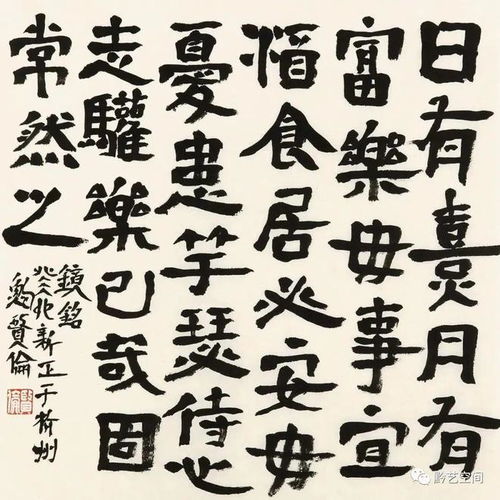 日有憙月有
富樂毋事宜
酒食居必安毋
憂患竽瑟侍心
志驩樂已哉固
常然之
鏡銘
癸卯新正于杭州
鮑賢倫
黔艺空间